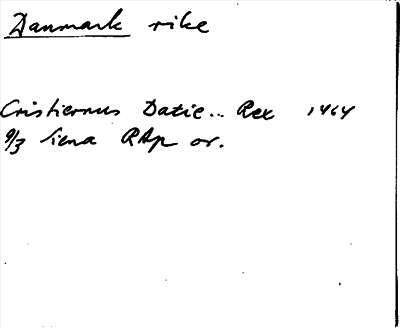 Danmark rike
Cristiernus Datie... Rex 1464
9/3 Siena RAp or.